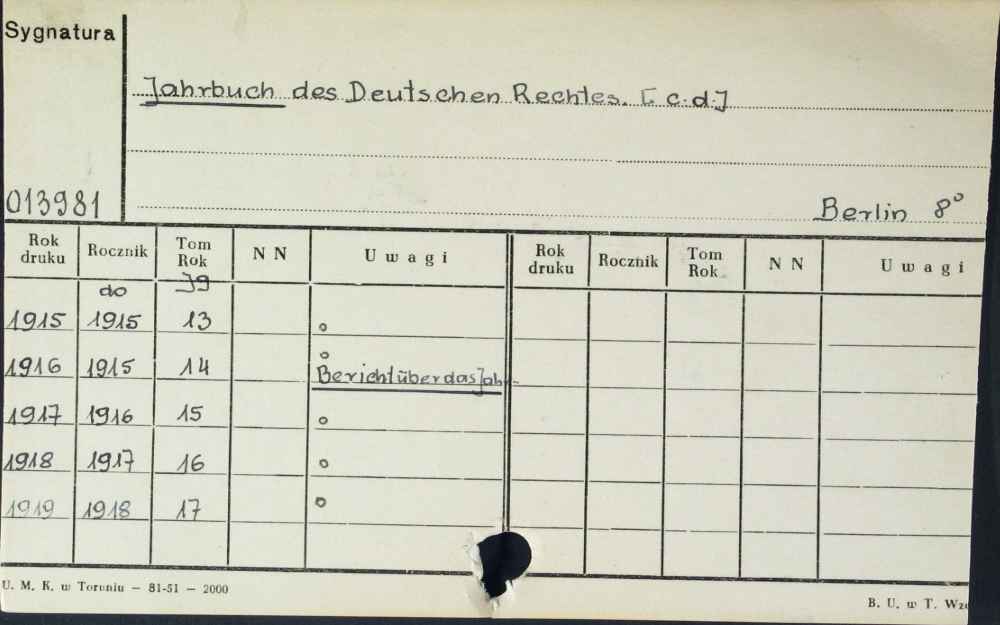 Sygnatura
Jahrbuch des Deutschen Rechtes. [c.d.]
013981
Berlin 8°
Rok druku Rocznik Tom Rok N N Uwagi Rok druku Rocznik Tom Rok N N Uwagi
do Jg
1915 1915 13 o
1916 1915 14 o
Bericht über das Jahr-
1917 1916 15 o
1918 1917 16 o
1919 1918 17 o
U. M. K. w Toruniu — 81-51 — 2000
B. U. w T.